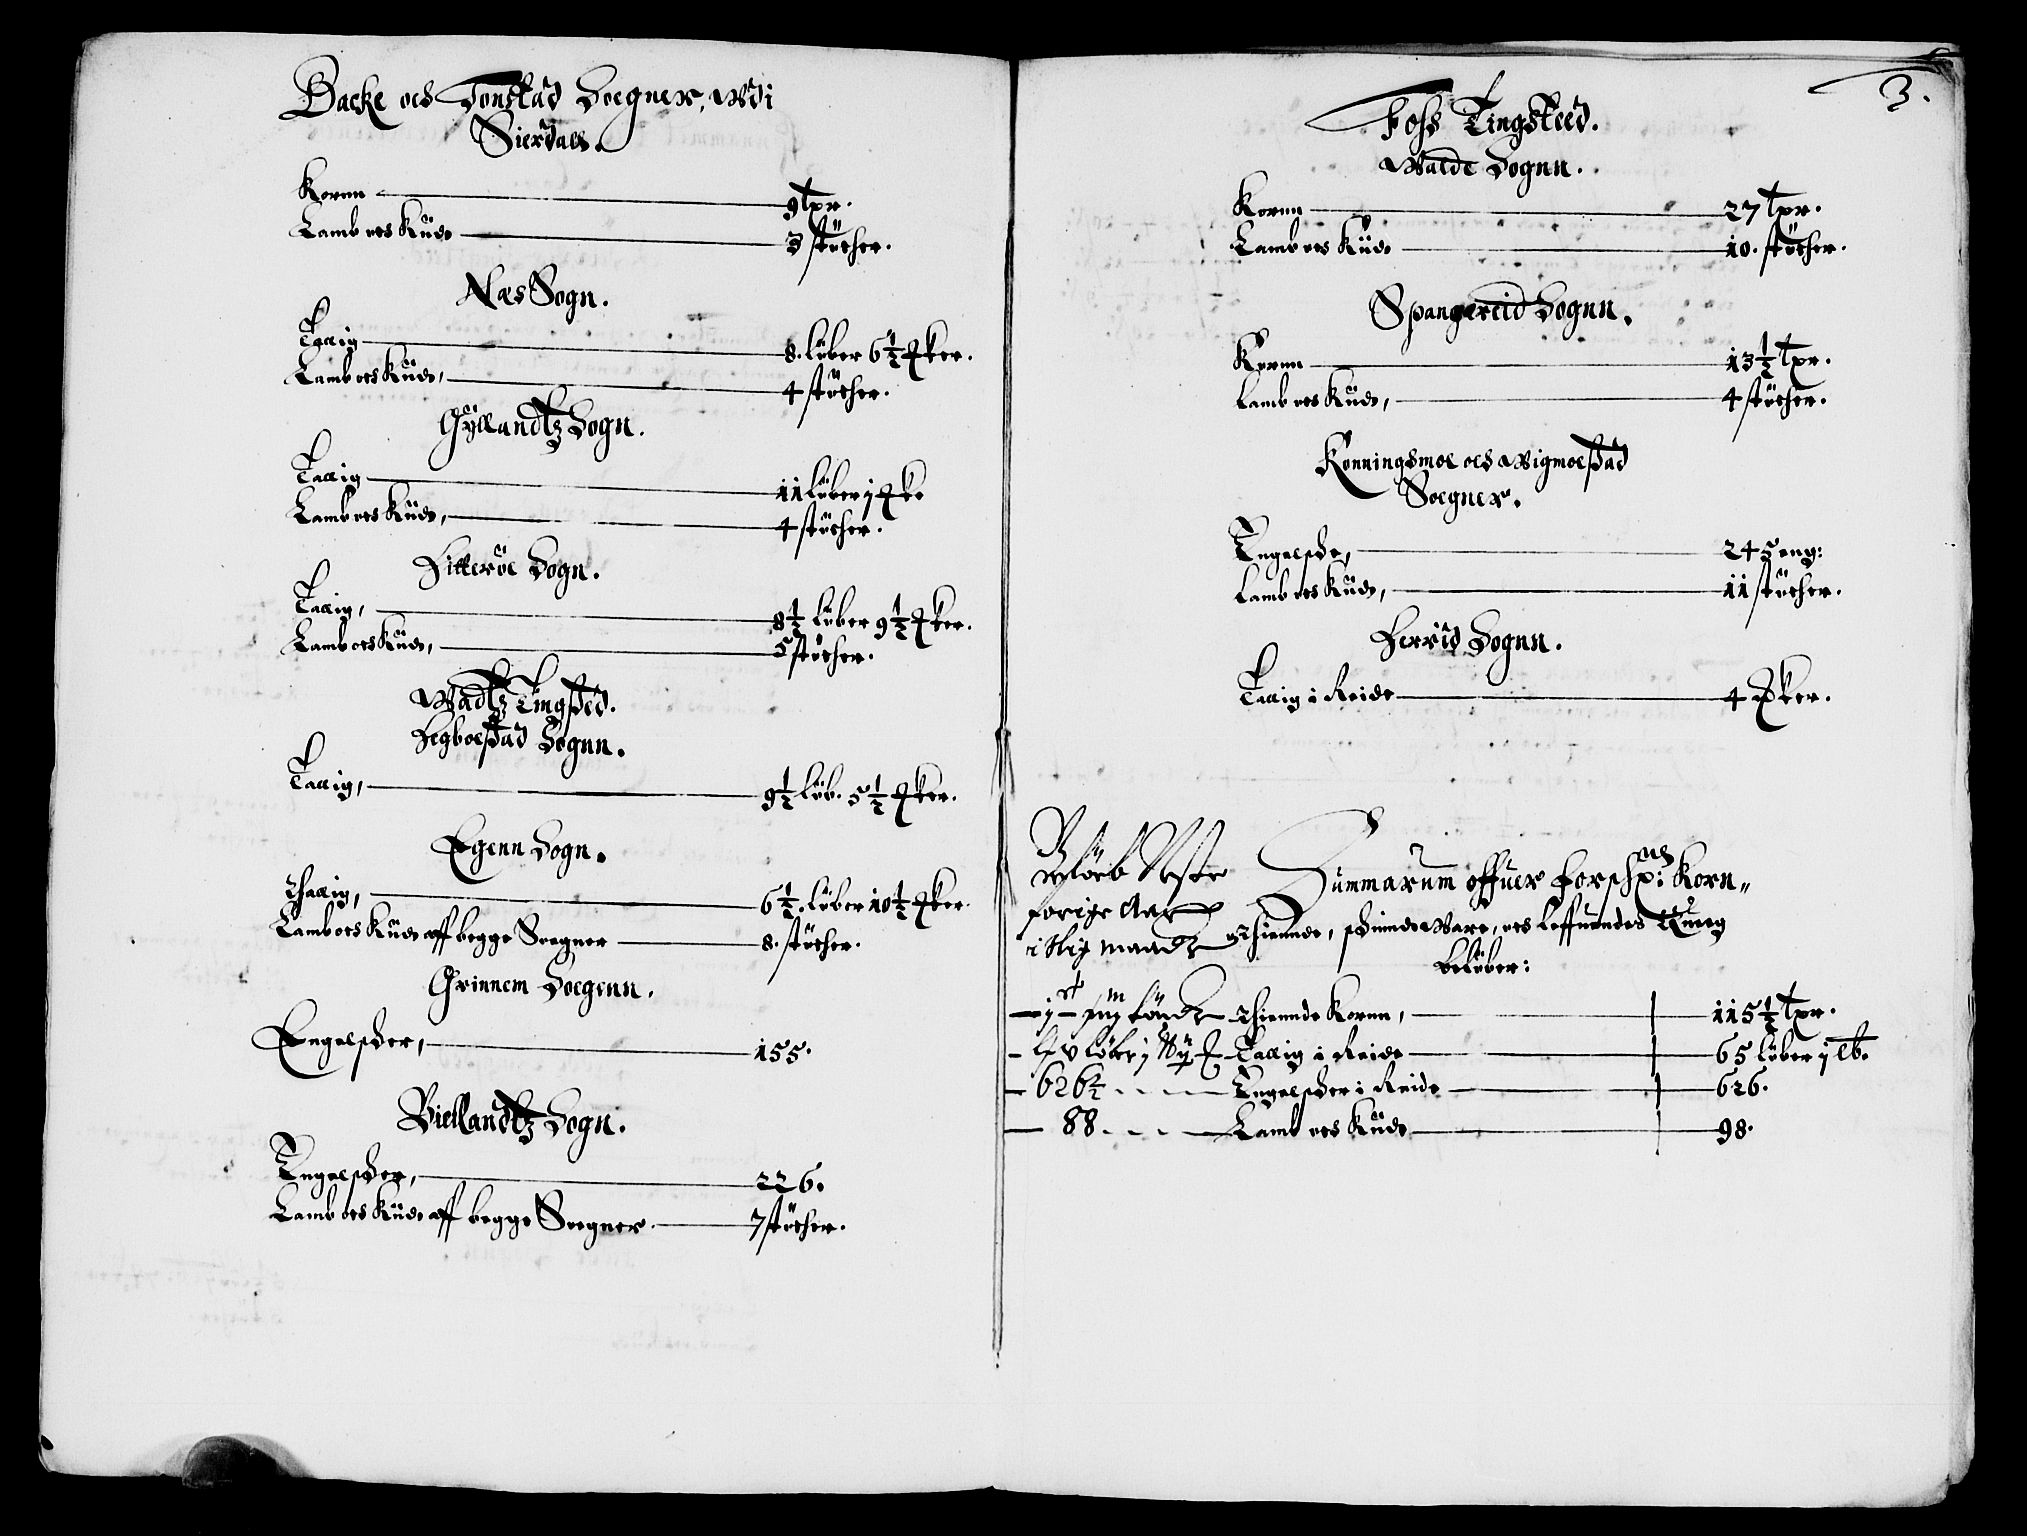 Backe och Tonstad Soegner, udi
Sierdall.
Kornn 9 tpr.
Lamb och Kiid 3 støcher.
Næs Sogn.
Tallig 8. løber 6½ ker.
Lamb och Kiid, 4 støcher.
Gyllandtz Sogn.
Tallig 11 løber j ke
Lamb och Kiid, 4 støcher.
Hitterøe Sogn.
Tallig, 8½ løber 9½ ker.
Lamb och Kiid, 5 støcher.
Wadtz Tingsted.
Hegboestad Sognn.
Tallig, 9½ løb. 5½ ker.
Egenn Sogn.
Thallig, 6½. løber 10½ ker.
Lamb och Kiid aff begge Soegner 8. støcher.
Grinnem Soegenn.
Engelscher, 155.
Biellandtz Sogn.
Engelscher, 226.
Lamb och Kiid aff begge Soegner 7 støcher.
3.
Foss Tingsteed.
Walde Sognn.
Kornn 27 tpr.
Lamb och Kiid 10. støcher.
Spangereid Sognn.
Kornn 13½ tpr.
Lamb och Kiid, 4 støcher.
Konningsmoe och Wigmoestad
Soegner.
Engelsche, 245 eng:
Lamb och Kiid, 11 støcher.
Herrid Sognn.
Tallig i Reide 4 ker.
Beløb Neste
forige Aar
i slig maade
Summarum offuer Korn-
Thiennde, schinde Ware, och leffuendes Queg
Beløber:
Thiennde Kornn, 115½ tpr.
Tallig i Reide 65 løber j lb.
626½ Engelscher i Reide 626.
88 Lamb och Kiid 98.